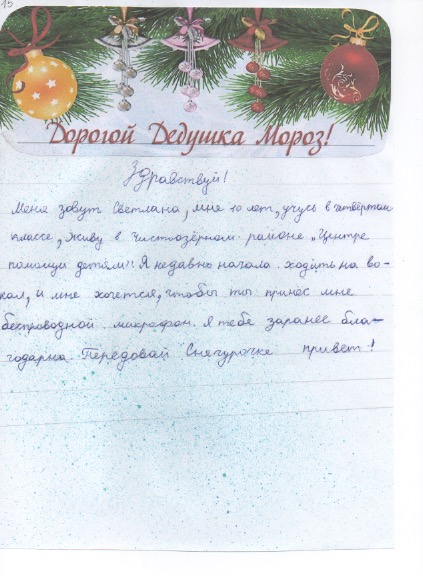 15
Дорогой Дедушка Мороз!
Здравствуй!
Меня зовут Светлана, мне 10 лет, учусь в четвёртом
классе, живу в Чистоозёрном районе „Центре
помощи детям". Я недавно начала ходить на во-
кал, и мне хочется, чтобы ты принёс мне
беспроводной микрофон. Я тебе заранее бла-
годарна. Передовай Снегурочке привет!